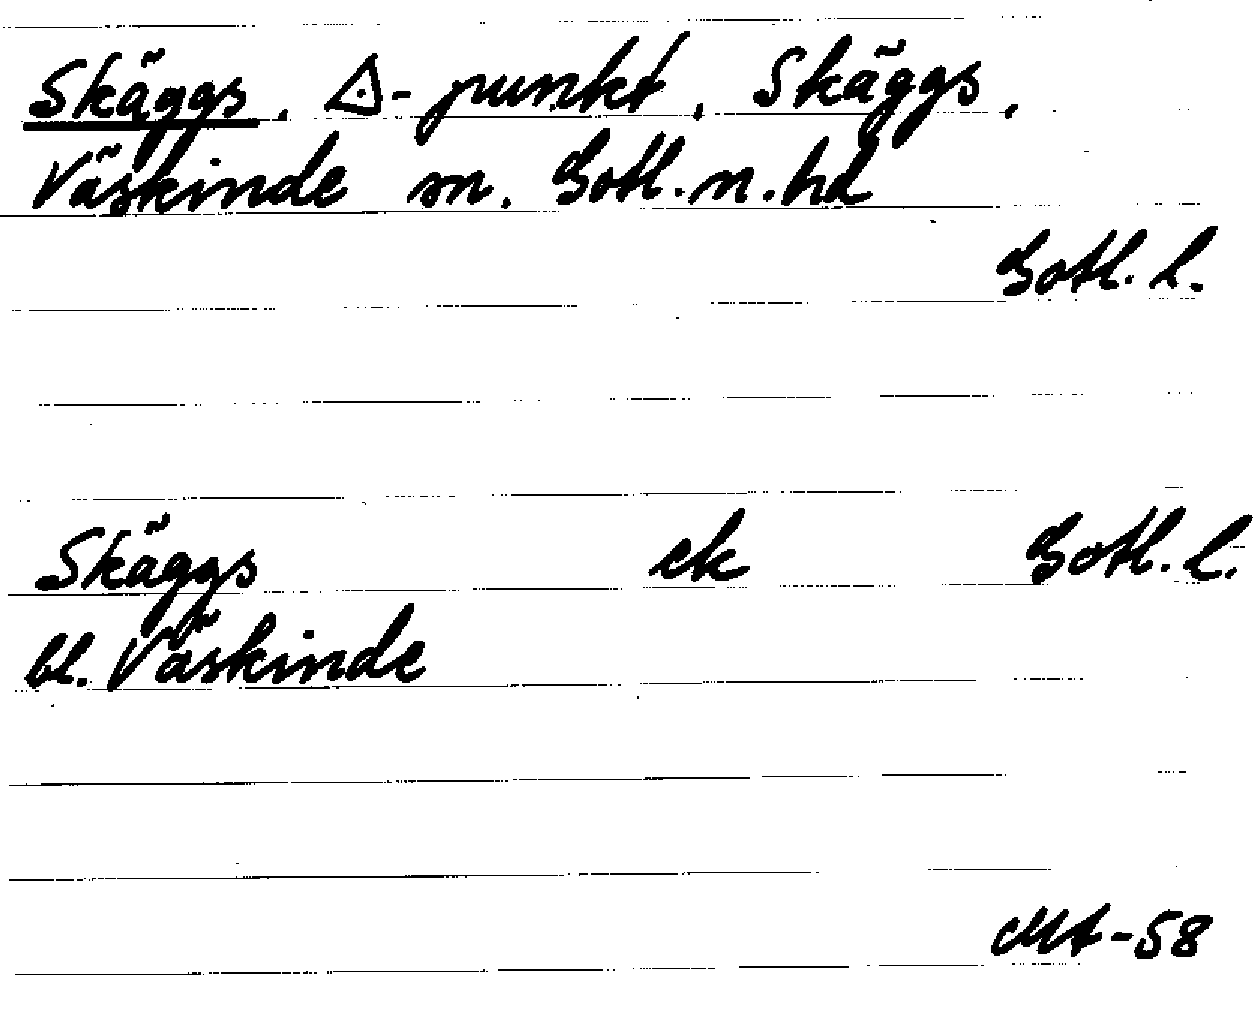 Skäggs, ⟁-punkt, Skäggs,
Väskinde sn. Gotl. n. hd
Gotl. l.
Skäggs ek Gotl. l.
bl. Väskinde
MA-58